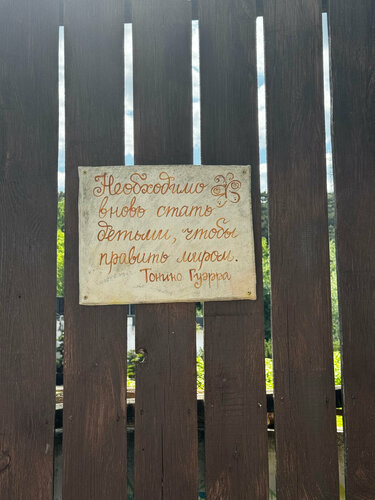 Необходимо
вновь стать
детьми, чтобы
править миром.
Тонино Гуэрра